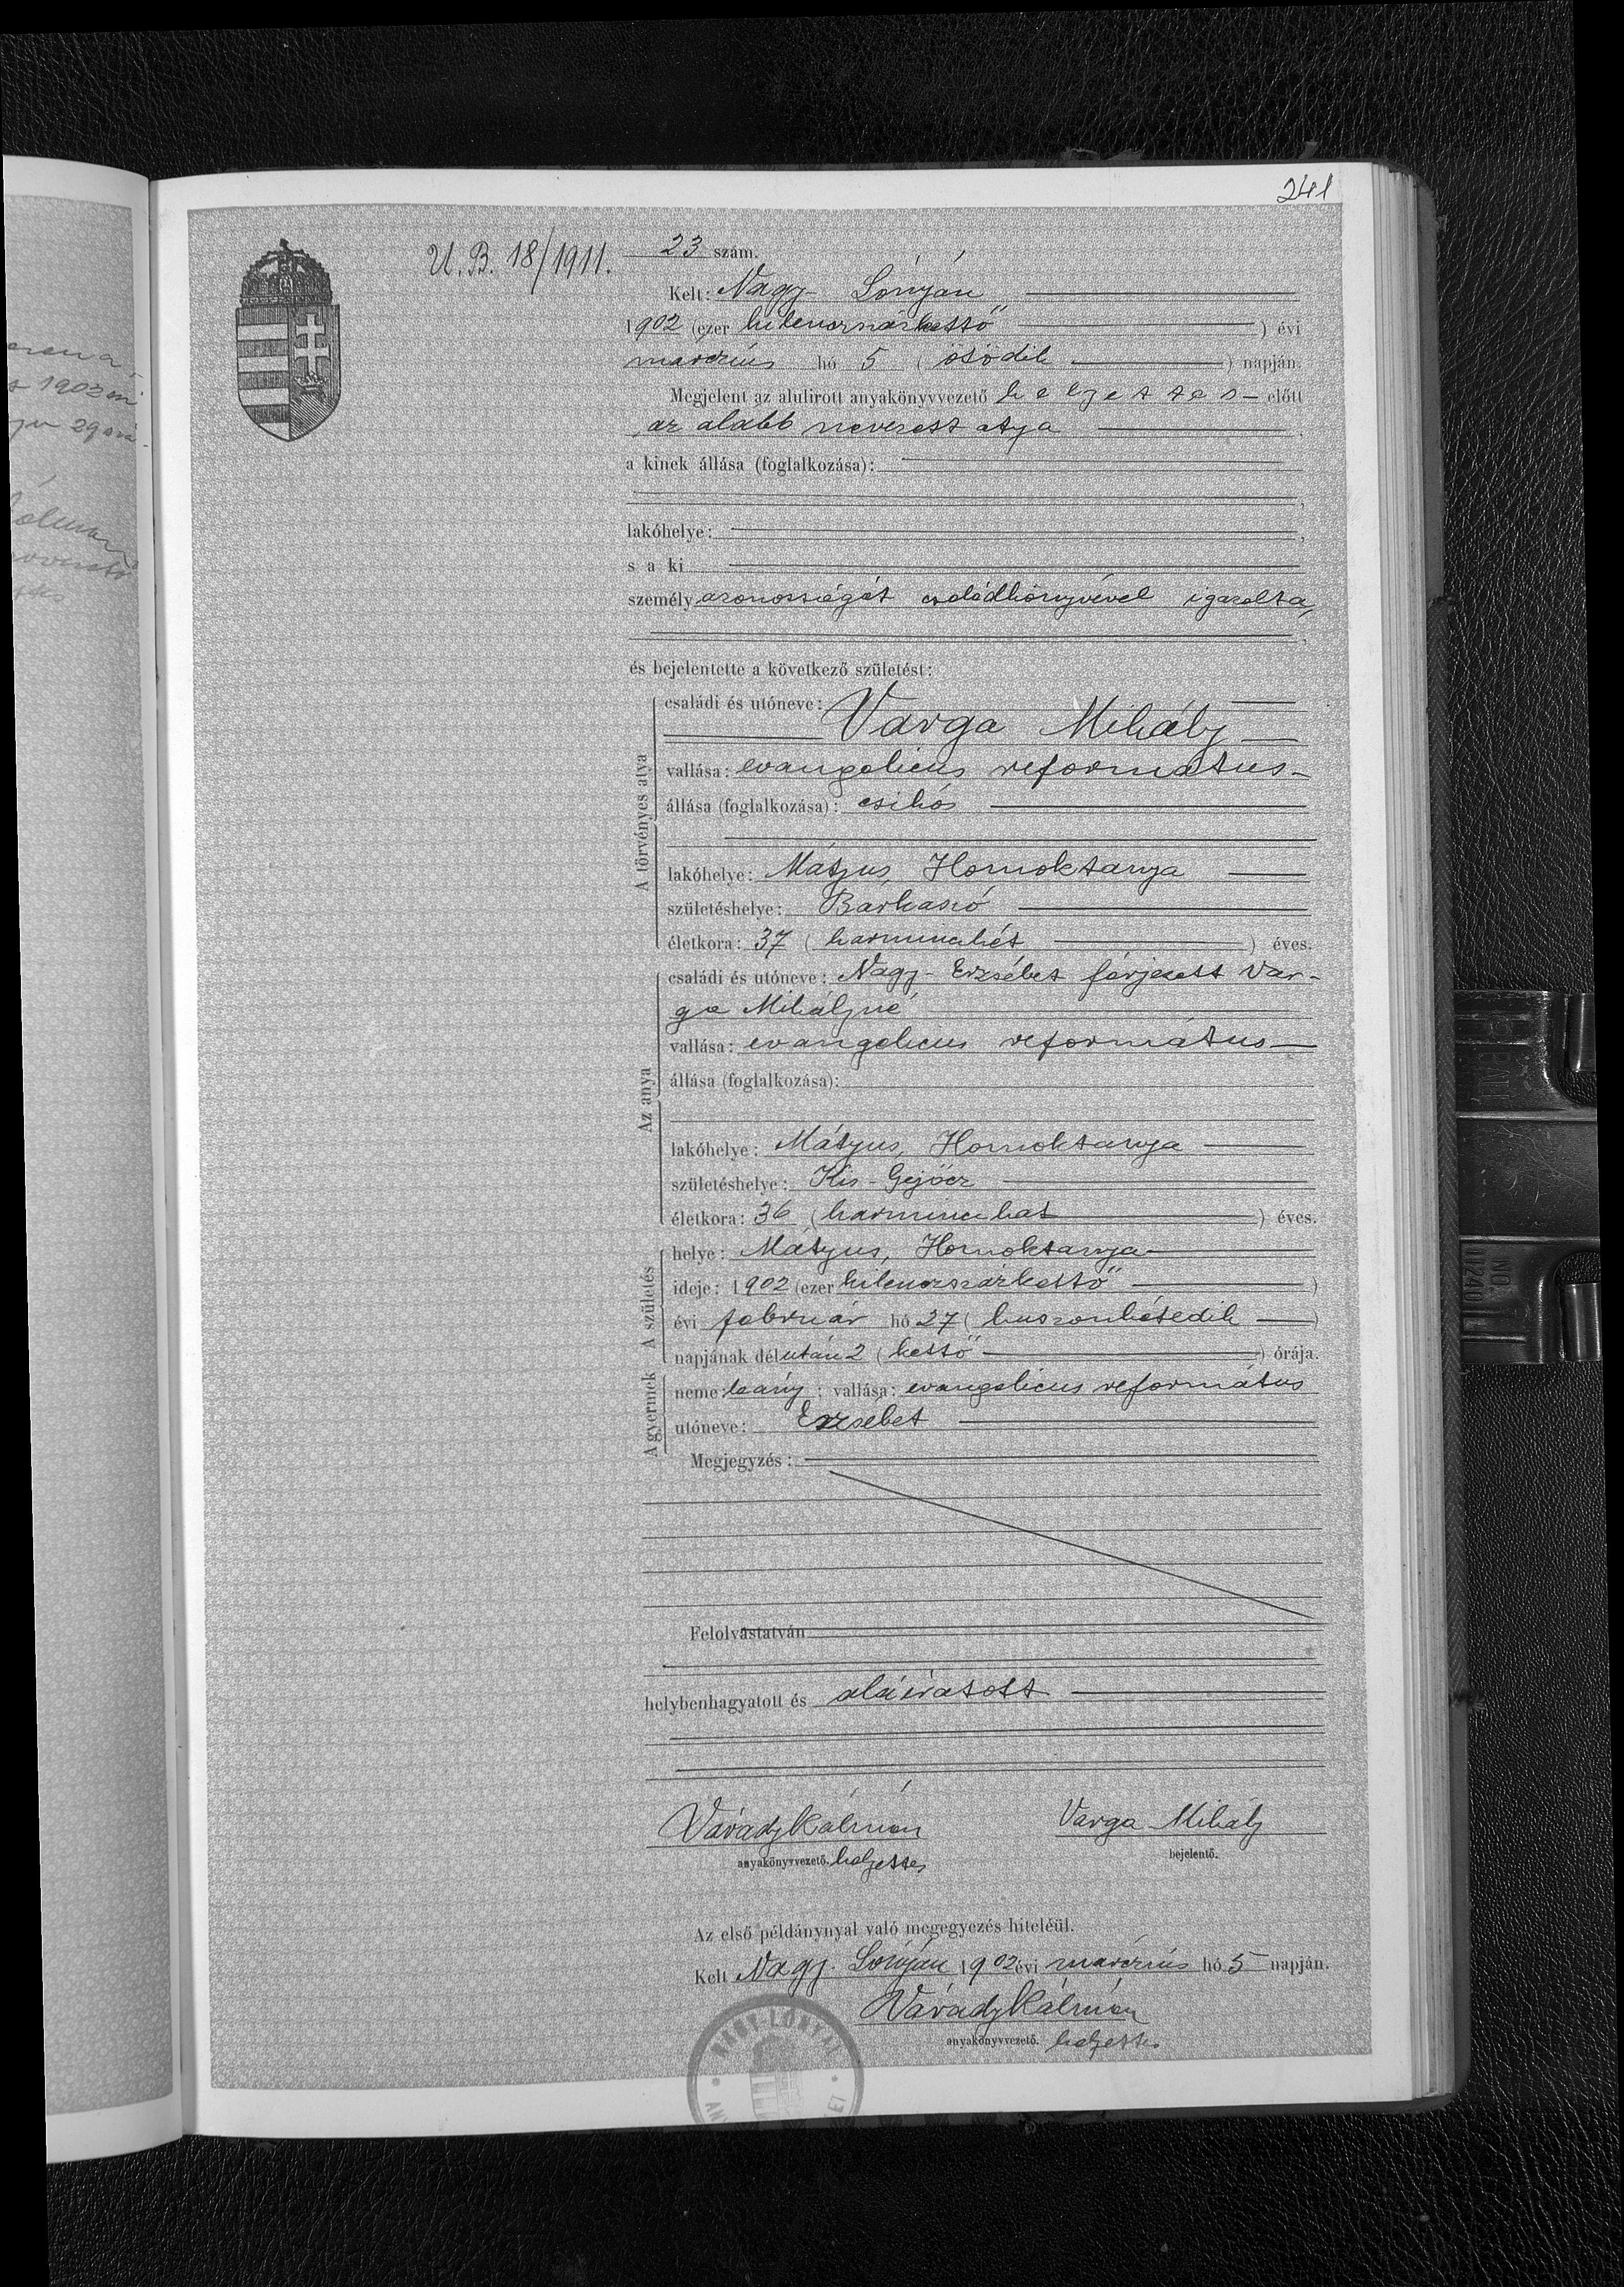 241
U. B. 18/1911.
23 szám.
Kelt: Nagy Lónyán
1902 (ezer kilenczszázkettő) évi
marczius hó 5 (ötödik) napján.
Megjelent az alulirott anyakönyvvezető helyettes előtt
az alább nevezett atya
a kinek állása (foglalkozása):
lakóhelye:
s a ki
személyazonosságát családkönyvével igazolta,
és bejelentette a következő születést:
A törvényes atya
családi és utóneve:
Varga Mihály
vallása: evangelicus református
állása (foglalkozása): csikós
lakóhelye: Mátyus, Homoktanya
születéshelye: Barkaszó
életkora: 37 (harminczhét) éves.
Az anya
családi és utóneve: Nagy Erzsébet férjezett Var-
ga Mihályné
vallása: evangelicus református
állása (foglalkozása):
lakóhelye: Mátyus, Homoktanya
születéshelye: Kis-Gejőcz
életkora: 36 (harminczhat) éves.
A születés
helye: Mátyus, Homoktanya
ideje: 1902 (ezer kilenczszázkettő)
évi február hó 27 (huszonhétedik)
napjának délután 2 (kettő) órája.
A gyermek
neme: leány; vallása: evangelicus református
utóneve: Erzsébet
Megjegyzés:
Felolvastatván
helybenhagyatott és aláiratott
Várady Kálmán Varga Mihály
anyakönyvvezető. helyettes bejelentő.
Az első példánynyal való megegyezés hiteléül.
Kelt Nagy Lónyán 1902 évi marczius hó 5 napján.
Várady Kálmán
anyakönyvvezető. helyettes
NAGY-LÓNYAI